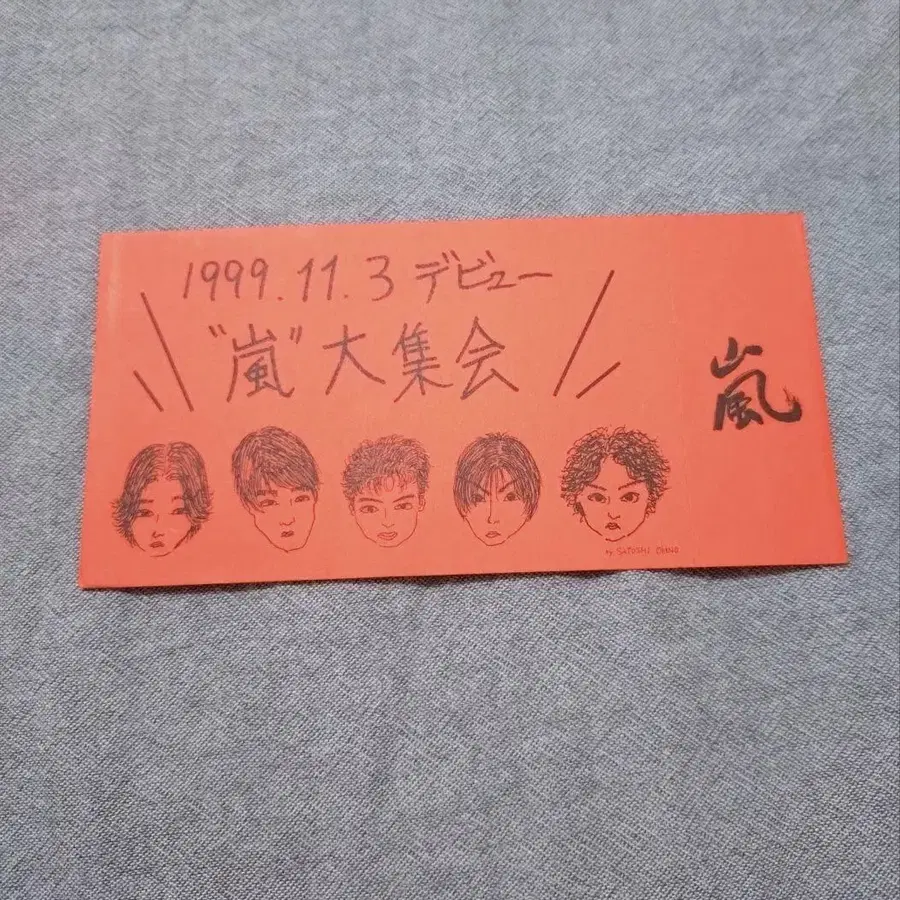 1999.11.3 デビュー
"嵐"大集会
嵐
by SATOSHI OHNO